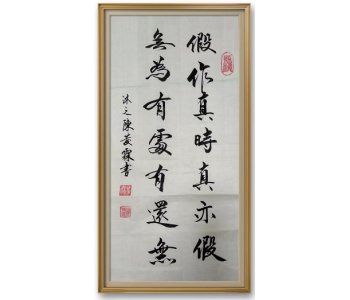 假作真時真亦假
無為有處有還無
沐之陳炎霖書